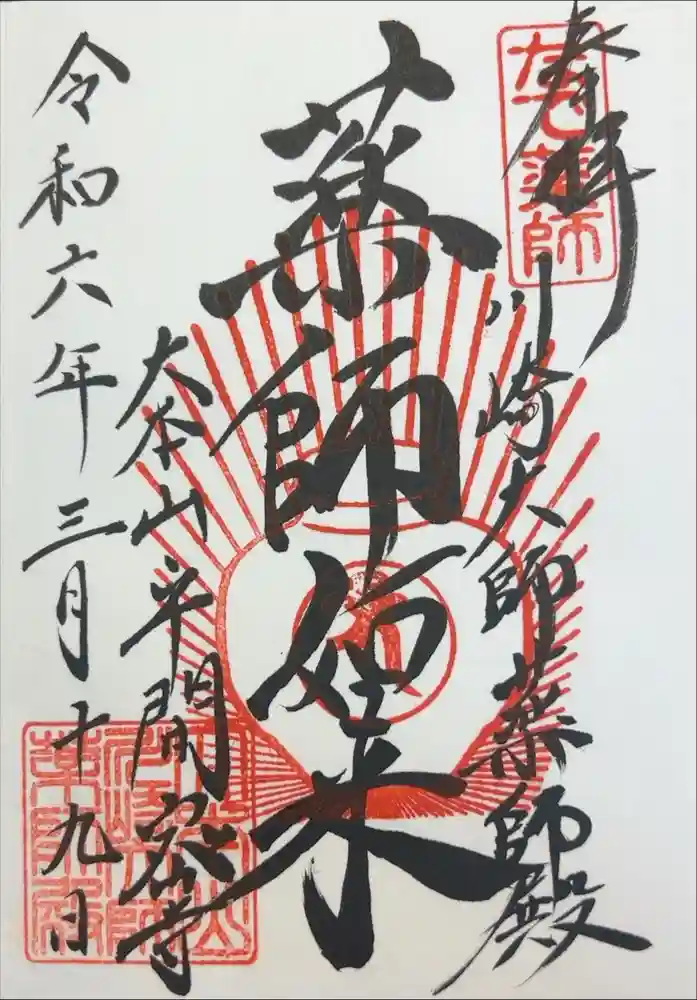 奉拝
川崎大師薬師殿
薬師如来
大本山平間密寺
令和六年三月十九日